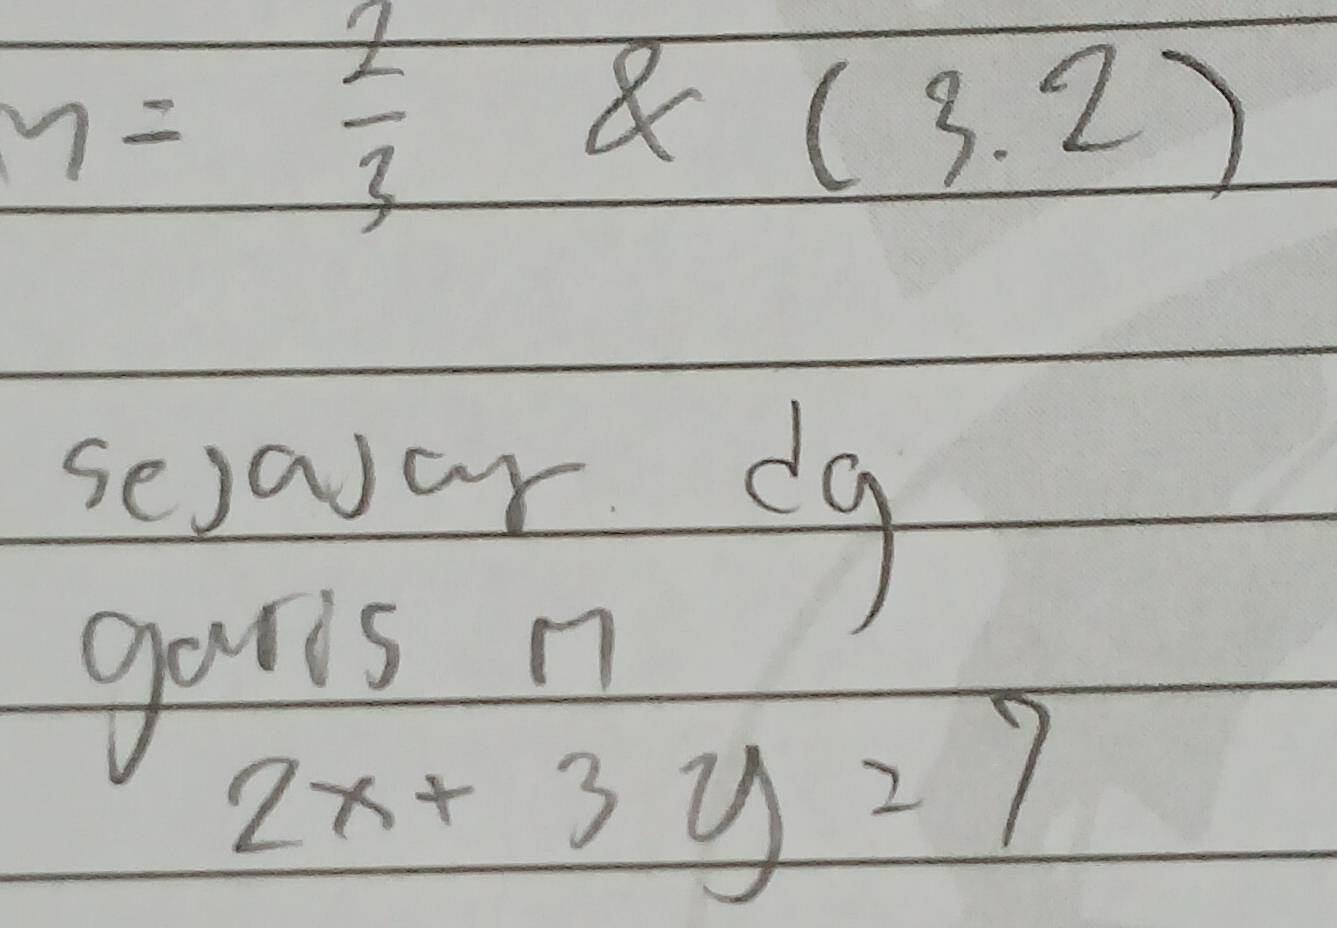 m = 2/3 & (3.2)
sejajar dg
garis n
2x + 3y = 7